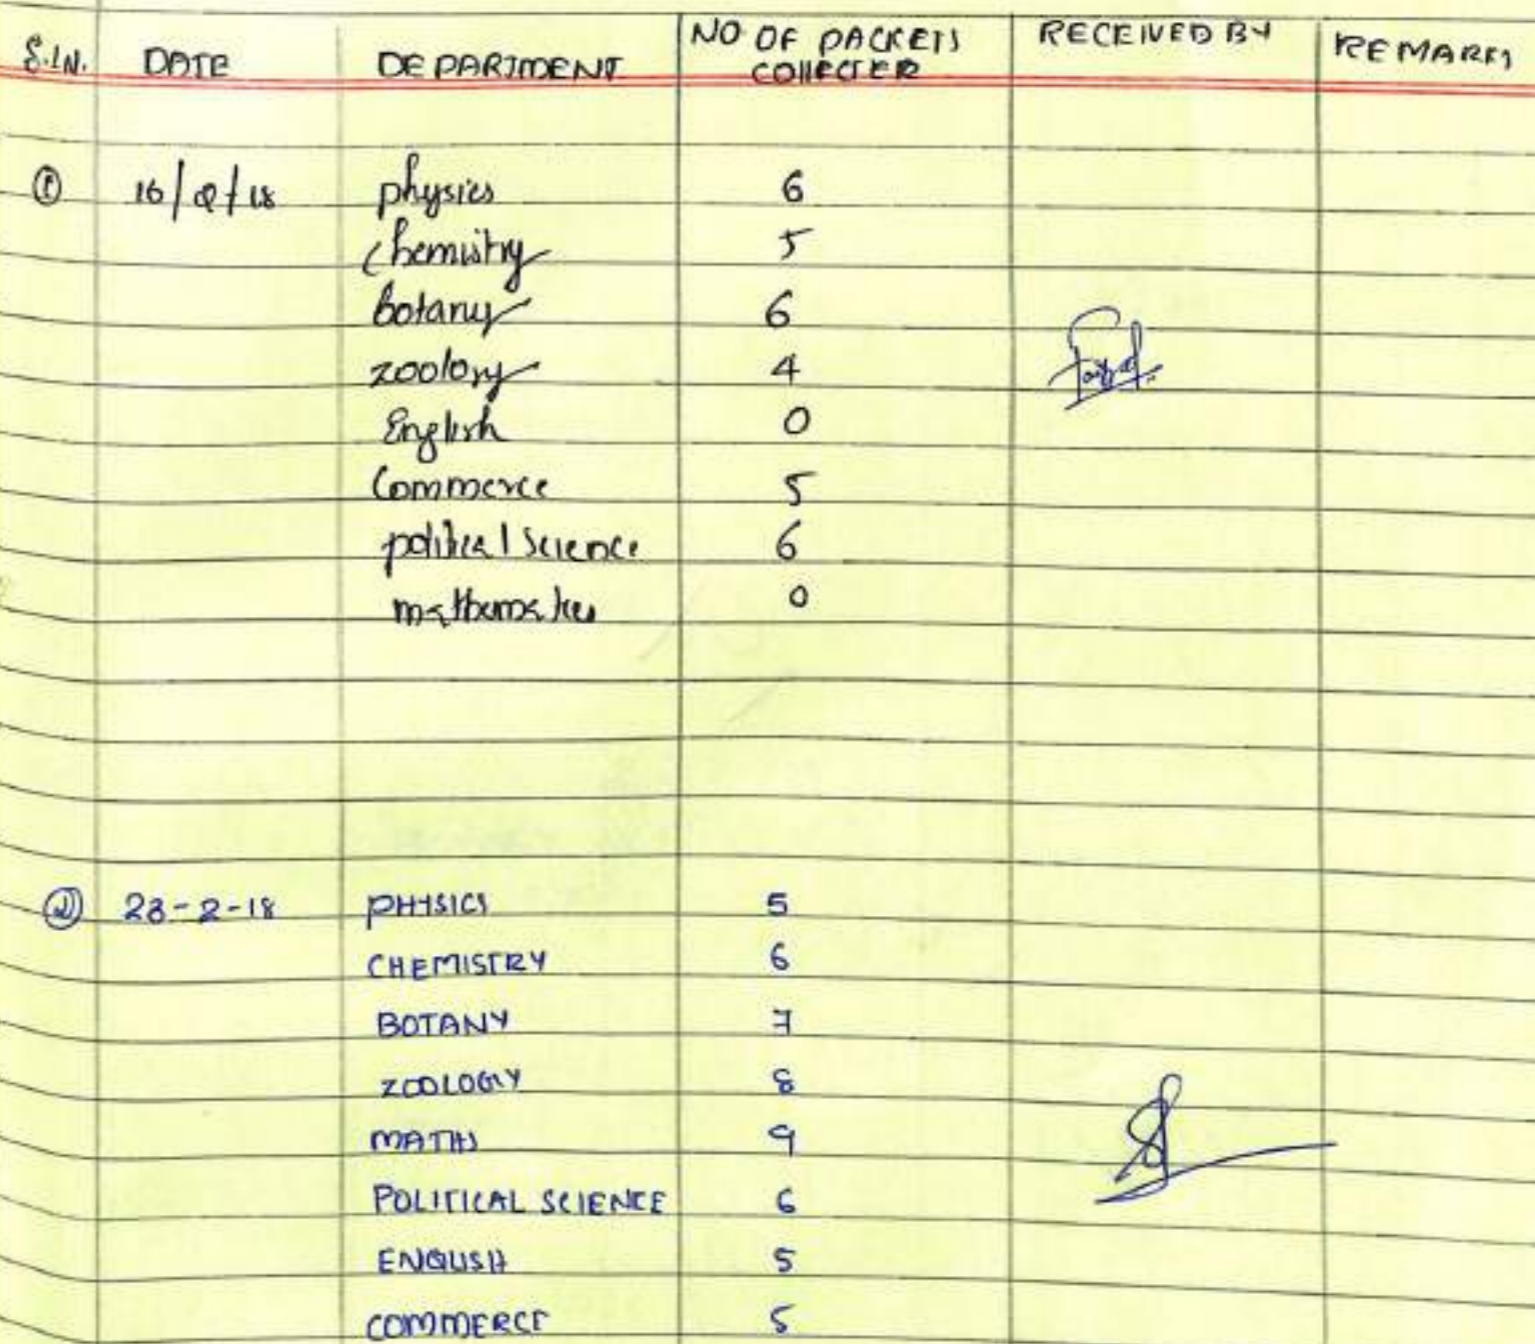 S.IN. DATE DEPARTMENT NO OF PACKETS COLLECTER RECEIVED BY REMARKS
① 16/2/18 physics 6
chemistry 5
botany 6
zoology 4
English 0
Commerce 5
political Science 6
mathematics 0
② 23-2-18 PHYSICS 5
CHEMISTRY 6
BOTANY 7
ZOOLOGY 8
MATHS 9
POLITICAL SCIENCE 6
ENGLISH 5
COMMERCE 5